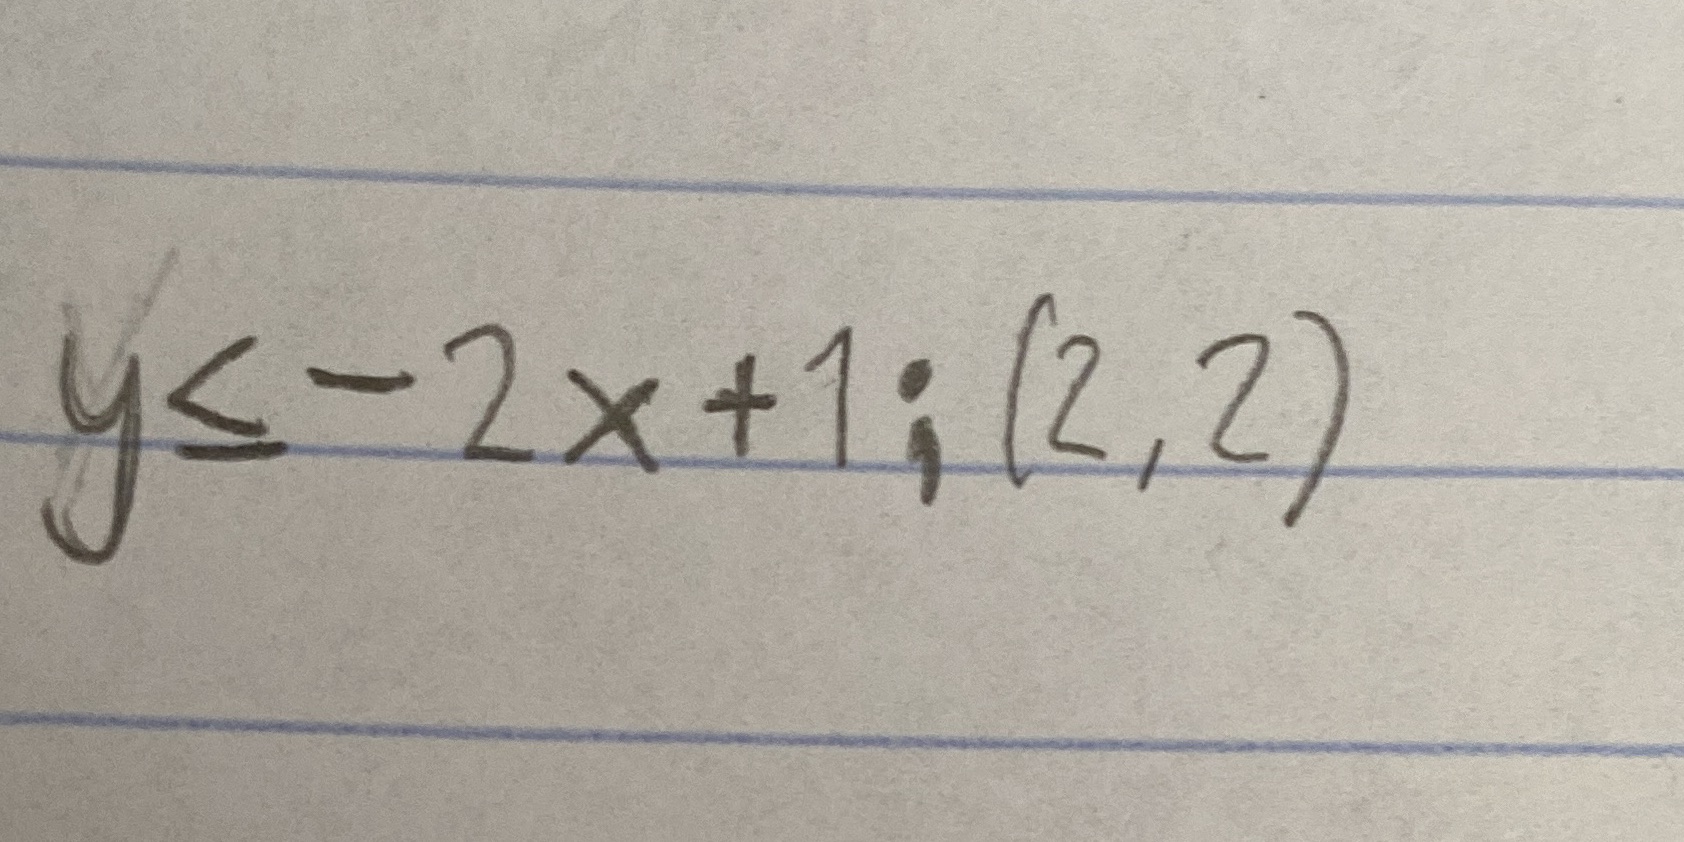 y≤-2x+1;(2,2)